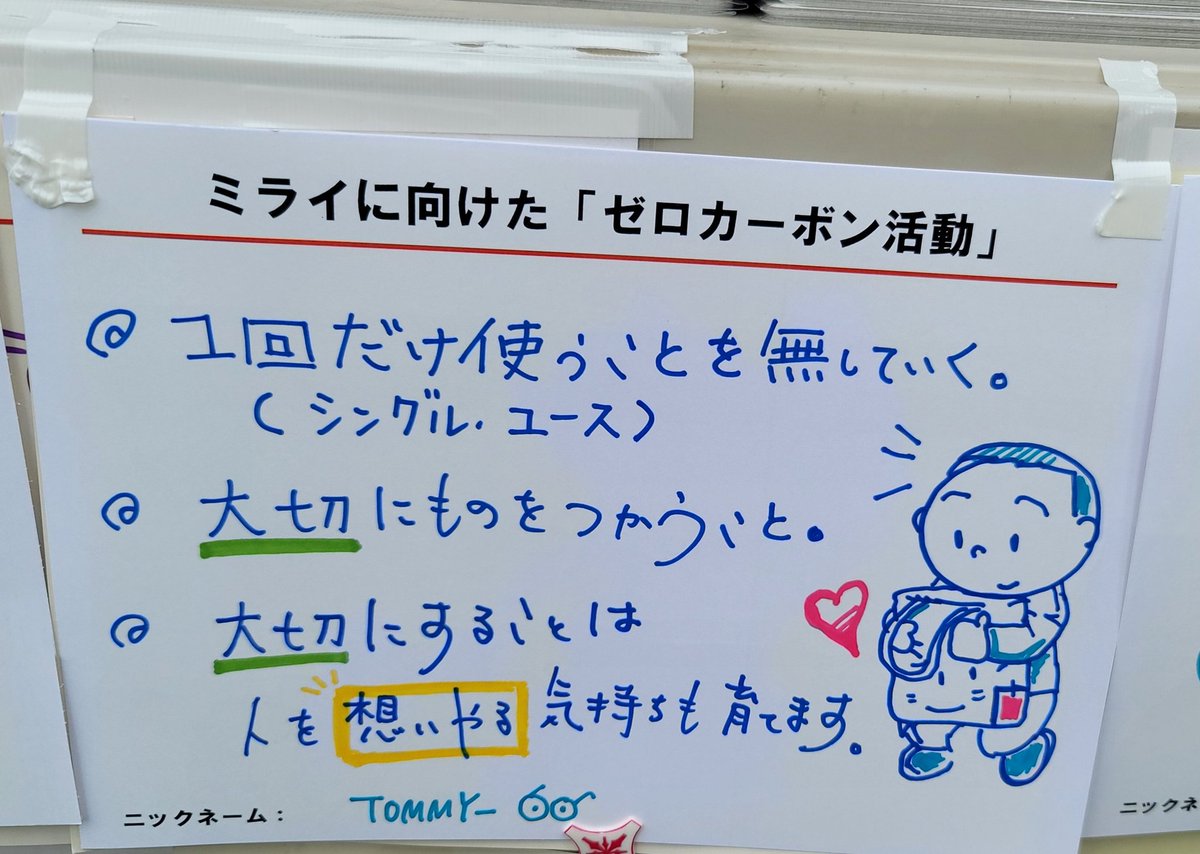 ミライに向けた「ゼロカーボン活動」
@ 1回だけ使うことを無していく。
(シングル・ユース)
@ 大切にものをつかうこと。
@ 大切にすることは
人を想いやる気持ちも育てます。
ニックネーム: TOMMY-
ニックネ